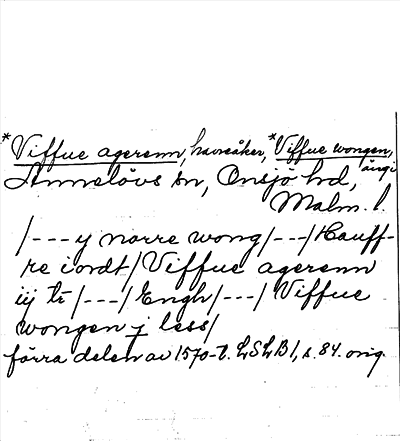 *Viffue agerenn, havreåker, *Viffue wongen, ängi
Annelövs sn, Onsjö hd,
Malm. l.
/---y norre wong/---/Hauff-
re iordt/Viffue agerenn
iij tr/---/Engh/---/Viffue
wongen j less/
förra delen av 1570-t. LSLB1, s. 84. orig.